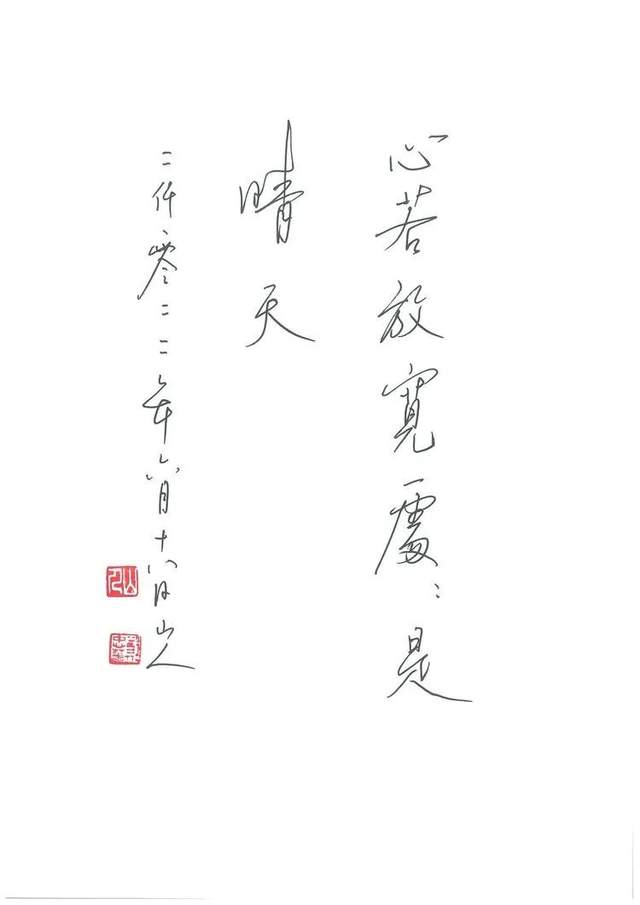 心若放寬處:是
晴天
二仟零二二年六月十八日山人
山人